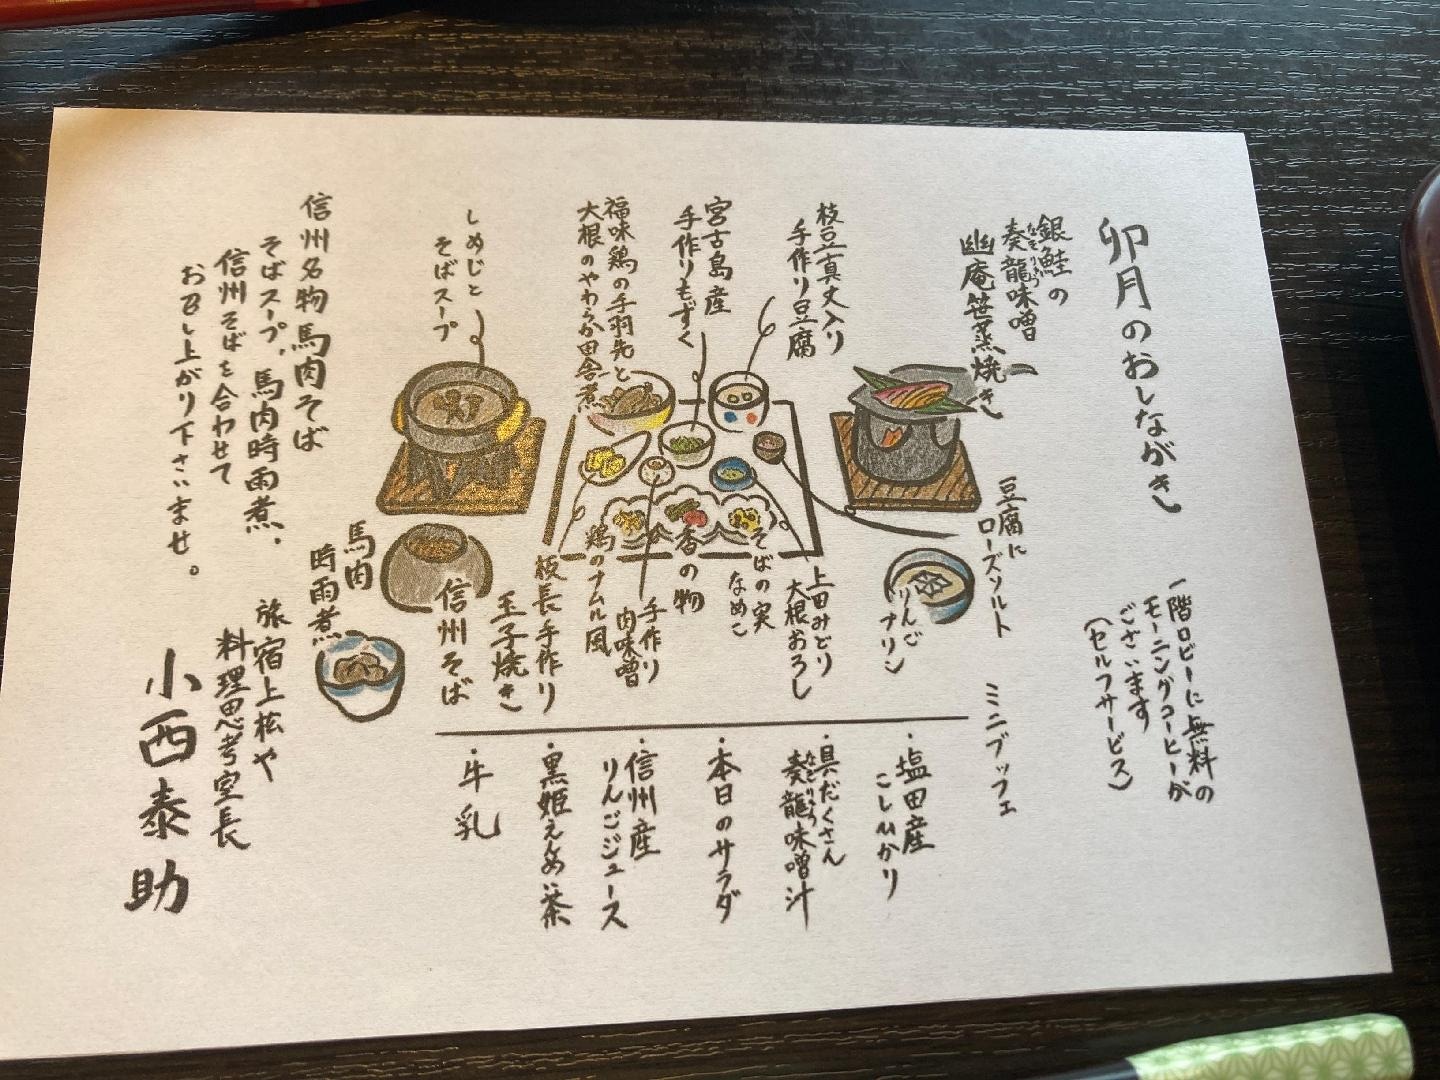 卯月のおしながき
一階ロビーに無料の
モーニングコーヒーが
ございます
(セルフサービス)
銀鮭の
奏龍味噌
なぞりゅう
幽庵笹蒸焼き
枝豆真丈入り
手作り豆腐
宮古島産
手作りもずく
福味鶏の手羽先と
大根のやわらか田舎煮
しめじと
そばスープ
豆腐に
ローズソルト
りんご
プリン
上田みどり
大根おろし
そばの実
なめこ
香の物
手作り
肉味噌
鶏のナムル風
板長手作り
玉子焼き
信州そば
馬肉
時雨煮
信州名物馬肉そば
そばスープ、馬肉時雨煮、
信州そばを合わせて
お召し上がり下さいませ。
ミニブッフェ
・塩田産
こしひかり
・具だくさん
奏龍味噌汁
・本日のサラダ
・信州産
りんごジュース
・黒姫えんめい茶
・牛乳
旅宿上松や
料理思考室長
小西泰助